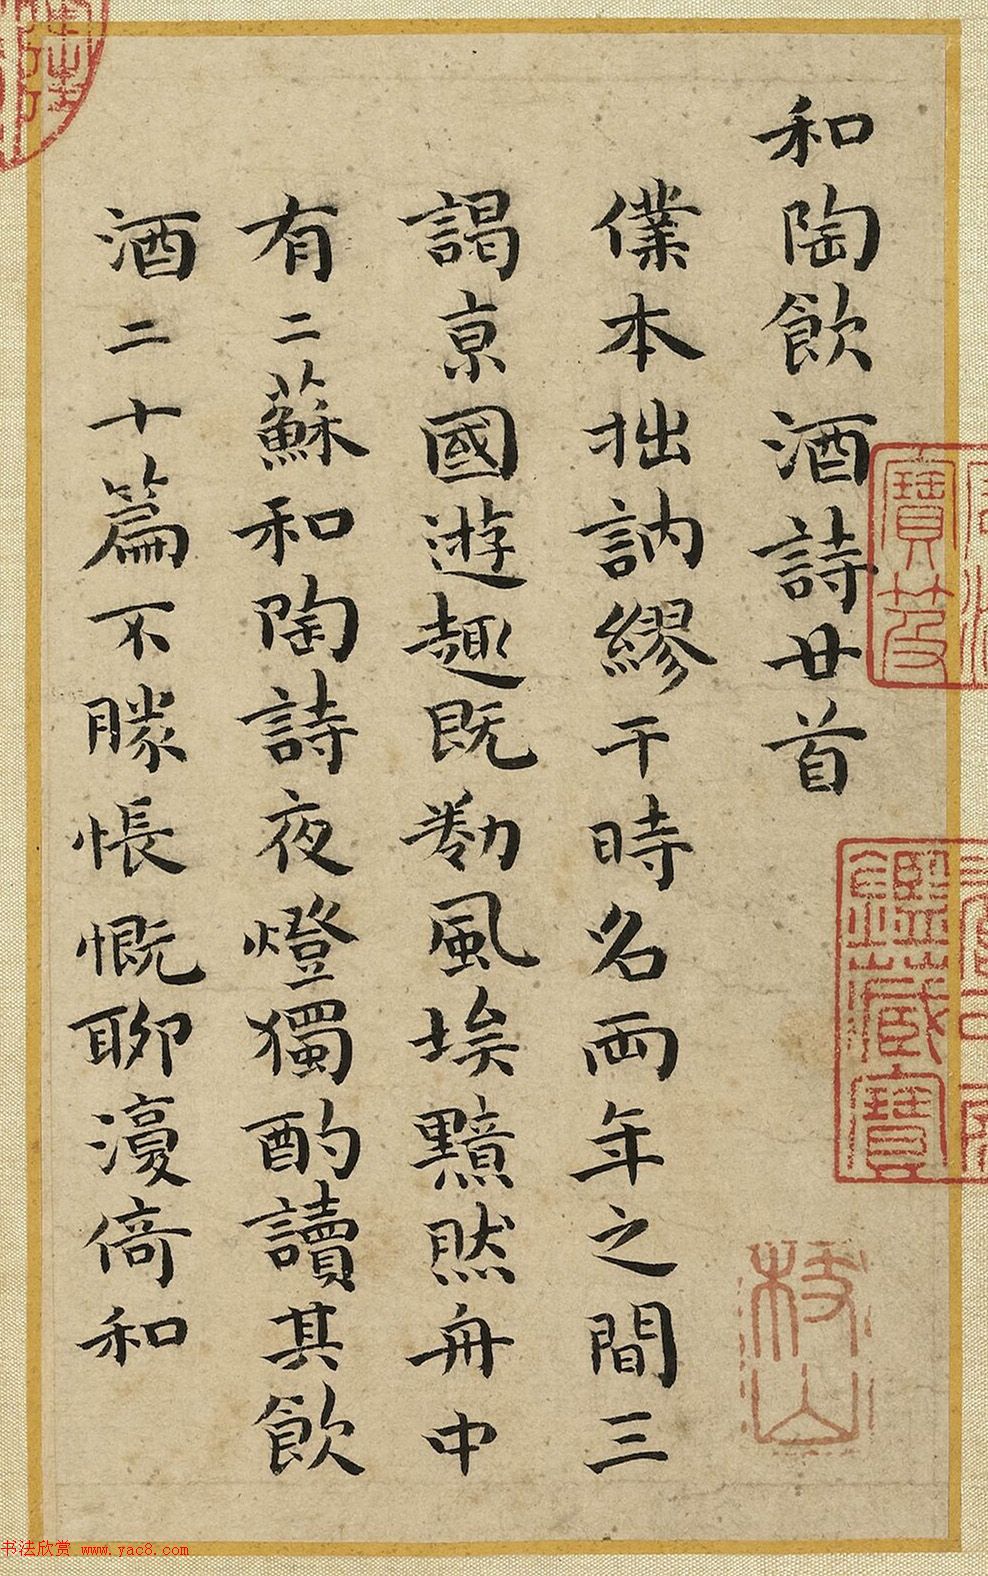 和陶飲酒詩廿首
僕本拙訥繆干時名兩年之間三
謁京國遊趣既勌風埃黯然舟中
有二蘇和陶詩夜燈獨酌讀其飲
酒二十篇不勝悵慨聊復倚和
枝山
鑑藏寶
書法欣赏 www.yac8.com